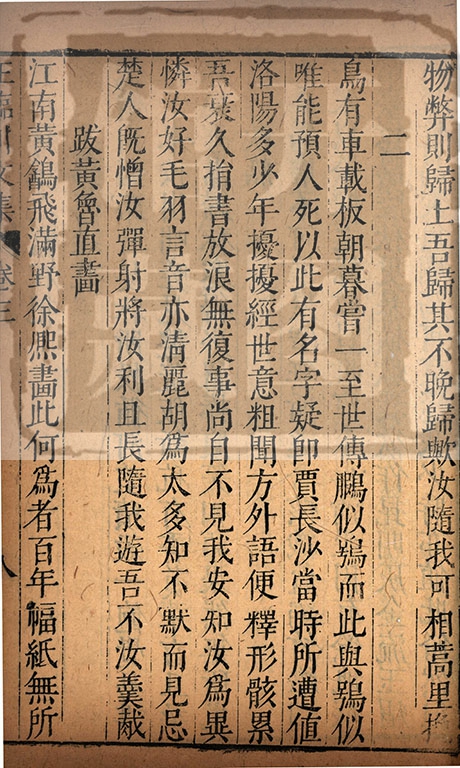 物弊則歸土吾歸其不晚歸歟汝隨我可相蒿里挽
二
鳥有車載板朝暮嘗一至世傳鵬似鴞而此與鴞似
唯能預人死以此有名字疑即賈長沙當時所遭值
洛陽多少年擾擾經世意粗聞方外語便釋形骸累
吾衰久捐書放浪無復事尚自不見我安知汝為異
憐汝好毛羽言音亦清麗胡為太多知不默而見忌
楚人旣憎汝彈射將汝利且長隨我遊吾不汝羹胾
跋黃魯直畵
江南黃鶴飛滿野徐熙畵此何為者百年幅紙無所
王臨川文集 卷三 八